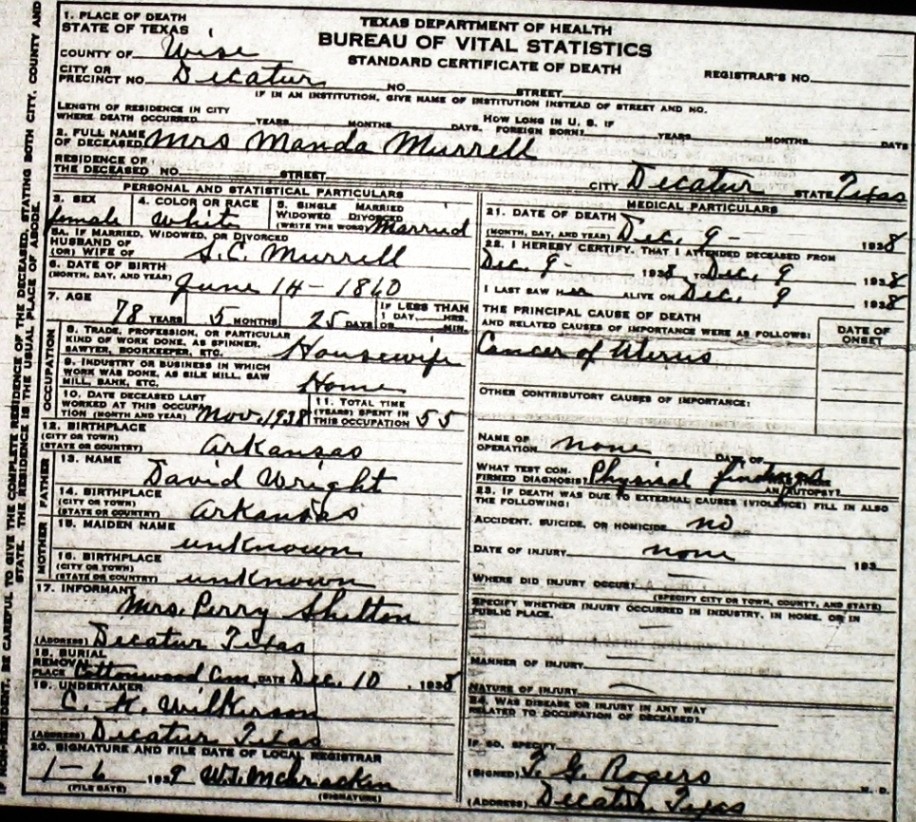 TEXAS DEPARTMENT OF HEALTH
BUREAU OF VITAL STATISTICS
STANDARD CERTIFICATE OF DEATH
1. PLACE OF DEATH
STATE OF TEXAS
COUNTY OF Wise
CITY OR PRECINCT NO. Decatur NO. STREET REGISTRAR'S NO.
IF IN AN INSTITUTION, GIVE NAME OF INSTITUTION INSTEAD OF STREET AND NO.
LENGTH OF RESIDENCE IN CITY WHERE DEATH OCCURRED YEARS MONTHS DAYS. HOW LONG IN U. S. IF FOREIGN BORN? YEARS MONTHS DAYS
2. FULL NAME OF DECEASED Mrs Manda Murrell
RESIDENCE OF THE DECEASED NO. STREET CITY Decatur STATE Texas
PERSONAL AND STATISTICAL PARTICULARS
3. SEX female
4. COLOR OR RACE White
5. SINGLE MARRIED WIDOWED DIVORCED (WRITE THE WORD) Married
5A. IF MARRIED, WIDOWED, OR DIVORCED
HUSBAND OF (OR) WIFE OF S.C. Murrell
6. DATE OF BIRTH (MONTH, DAY, AND YEAR) June 14 - 1860
7. AGE 78 YEARS 5 MONTHS 25 DAYS IF LESS THAN 1 DAY, HRS. OR MIN.
OCCUPATION
8. TRADE, PROFESSION, OR PARTICULAR KIND OF WORK DONE, AS SPINNER, SAWYER, BOOKKEEPER, ETC. Housewife
9. INDUSTRY OR BUSINESS IN WHICH WORK WAS DONE, AS SILK MILL, SAW MILL, BANK, ETC. Home
10. DATE DECEASED LAST WORKED AT THIS OCCUPATION (MONTH AND YEAR) Nov. 1938
11. TOTAL TIME (YEARS) SPENT IN THIS OCCUPATION 55
12. BIRTHPLACE (CITY OR TOWN) (STATE OR COUNTRY) Arkansas
FATHER
13. NAME David Wright
14. BIRTHPLACE (CITY OR TOWN) (STATE OR COUNTRY) Arkansas
MOTHER
15. MAIDEN NAME unknown
16. BIRTHPLACE (CITY OR TOWN) (STATE OR COUNTRY) unknown
17. INFORMANT Mrs. Perry Shelton
(ADDRESS) Decatur Texas
18. BURIAL REMOVAL
PLACE Cottonwood Cem. DATE Dec. 10, 1938
19. UNDERTAKER C. K. Wilkerson
(ADDRESS) Decatur Texas
20. SIGNATURE AND FILE DATE OF LOCAL REGISTRAR
1-6 1939 W.T. McCrackin
(FILE DATE) (SIGNATURE)
MEDICAL PARTICULARS
21. DATE OF DEATH (MONTH, DAY, AND YEAR) Dec. 9 - 1938
22. I HEREBY CERTIFY, THAT I ATTENDED DECEASED FROM
Dec. 9 - 1938 TO Dec. 9 1938
I LAST SAW Her ALIVE ON Dec. 9 1938
THE PRINCIPAL CAUSE OF DEATH AND RELATED CAUSES OF IMPORTANCE WERE AS FOLLOWS: DATE OF ONSET
Cancer of Uterus
OTHER CONTRIBUTORY CAUSES OF IMPORTANCE:
NAME OF OPERATION none DATE OF
WHAT TEST CONFIRMED DIAGNOSIS? Physical findings AUTOPSY?
23. IF DEATH WAS DUE TO EXTERNAL CAUSES (VIOLENCE) FILL IN ALSO THE FOLLOWING:
ACCIDENT, SUICIDE, OR HOMICIDE no
DATE OF INJURY none 193
WHERE DID INJURY OCCUR?
(SPECIFY CITY OR TOWN, COUNTY, AND STATE)
SPECIFY WHETHER INJURY OCCURRED IN INDUSTRY, IN HOME, OR IN PUBLIC PLACE.
MANNER OF INJURY
NATURE OF INJURY
24. WAS DISEASE OR INJURY IN ANY WAY RELATED TO OCCUPATION OF DECEASED?
IF SO, SPECIFY
(SIGNED) T. G. Rogers M. D.
(ADDRESS) Decatur, Texas
BE CAREFUL TO GIVE THE COMPLETE RESIDENCE OF THE DECEASED, STATING BOTH CITY, COUNTY AND
STATE. THE RESIDENCE IS THE USUAL PLACE OF ABODE.